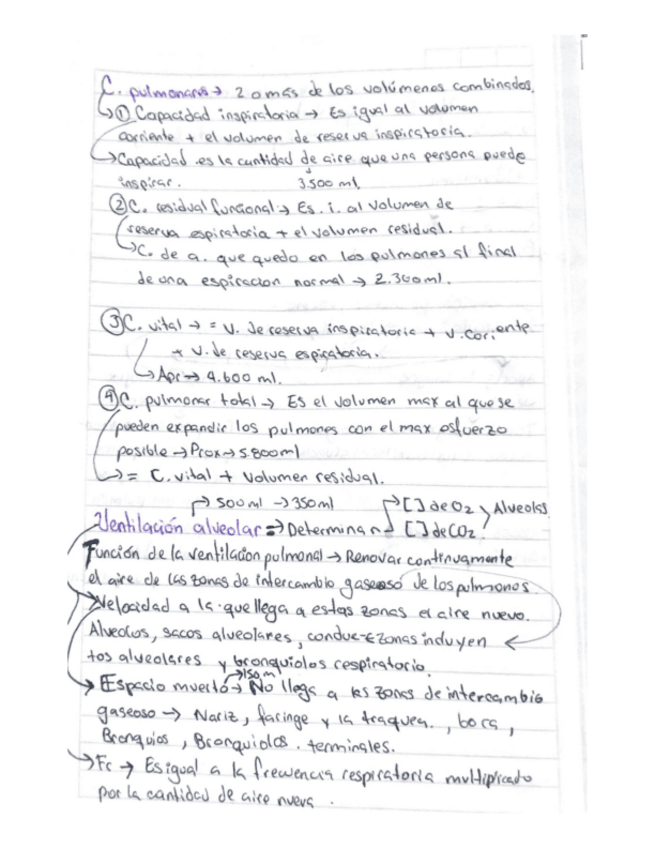 C. pulmonares → 2 o más de los volúmenes combinados.
① Capacidad inspiratoria → Es igual al volumen
corriente + el volumen de reserva inspiratoria.
→ Capacidad es la cantidad de aire que una persona puede
inspirar. 3.500 ml.
② C. residual funcional → Es. i. al volumen de
reserva espiratoria + el volumen residual.
→ C. de a. que quedo en los pulmones al final
de una espiracion normal → 2.300 ml.
③ C. vital → = V. de reserva inspiratoria + V. corriente
+ V. de reserva espiratoria.
→ Apr → 4.600 ml.
④ C. pulmonar total → Es el volumen max al que se
pueden expandir los pulmones con el max esfuerzo
posible → Prox → 5.800 ml
→ = C. vital + Volumen residual.
→ 500 ml → 350 ml → [ ] de O2 Alveolos
Ventilación alveolar ⇒ Determinan [ ] de CO2
Función de la ventilacion pulmonal → Renovar continuamente
el aire de las zonas de intercambio gaseoso de los pulmones
Velocidad a la que llega a estas zonas el aire nuevo.
Alveolos, sacos alveolares, conduc- zonas incluyen
tos alveolares y bronquiolos respiratorio.
→ 150 m
→ Espacio muerto → No llega a las zonas de intercambio
gaseoso → Nariz, faringe y la traquea., boca,
Bronquios, Bronquiolos. terminales.
→ Fr → Es igual a la frecuencia respiratoria multiplicado
por la cantidad de aire nueva.